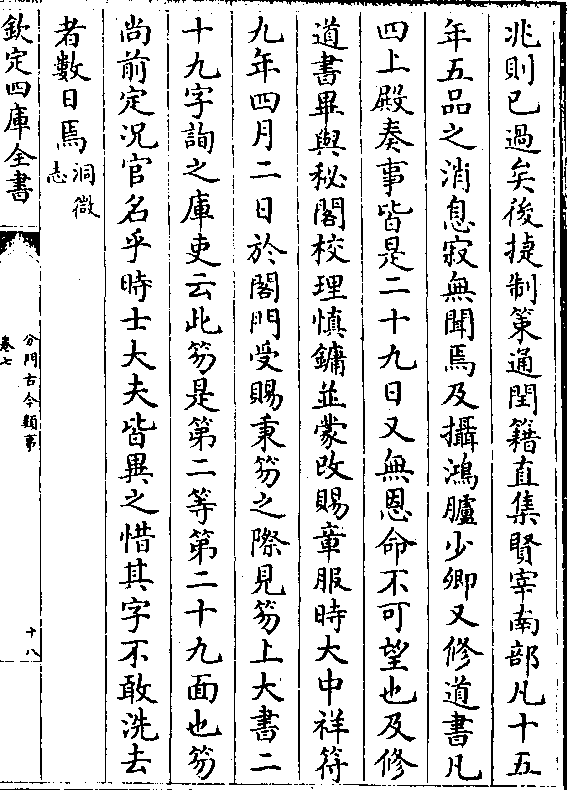 兆則已過矣後捷制策通閨籍直集賢宰南部凡十五
年五品之消息寂無聞焉及攝鴻臚少卿又修道書凡
四上殿奏事皆是二十九日又無恩命不可望也及修
道書畢與秘閣校理慎鏞並蒙改賜章服時大中祥符
九年四月二日於閤門受賜秉笏之際見笏上大書二
十九字詢之庫吏云此笏是第二等第二十九面也笏
尚前定況官名乎時士大夫皆異之惜其字不敢洗去
者數日焉洞微志
欽定四庫全書
分門古今類事
卷七
十八